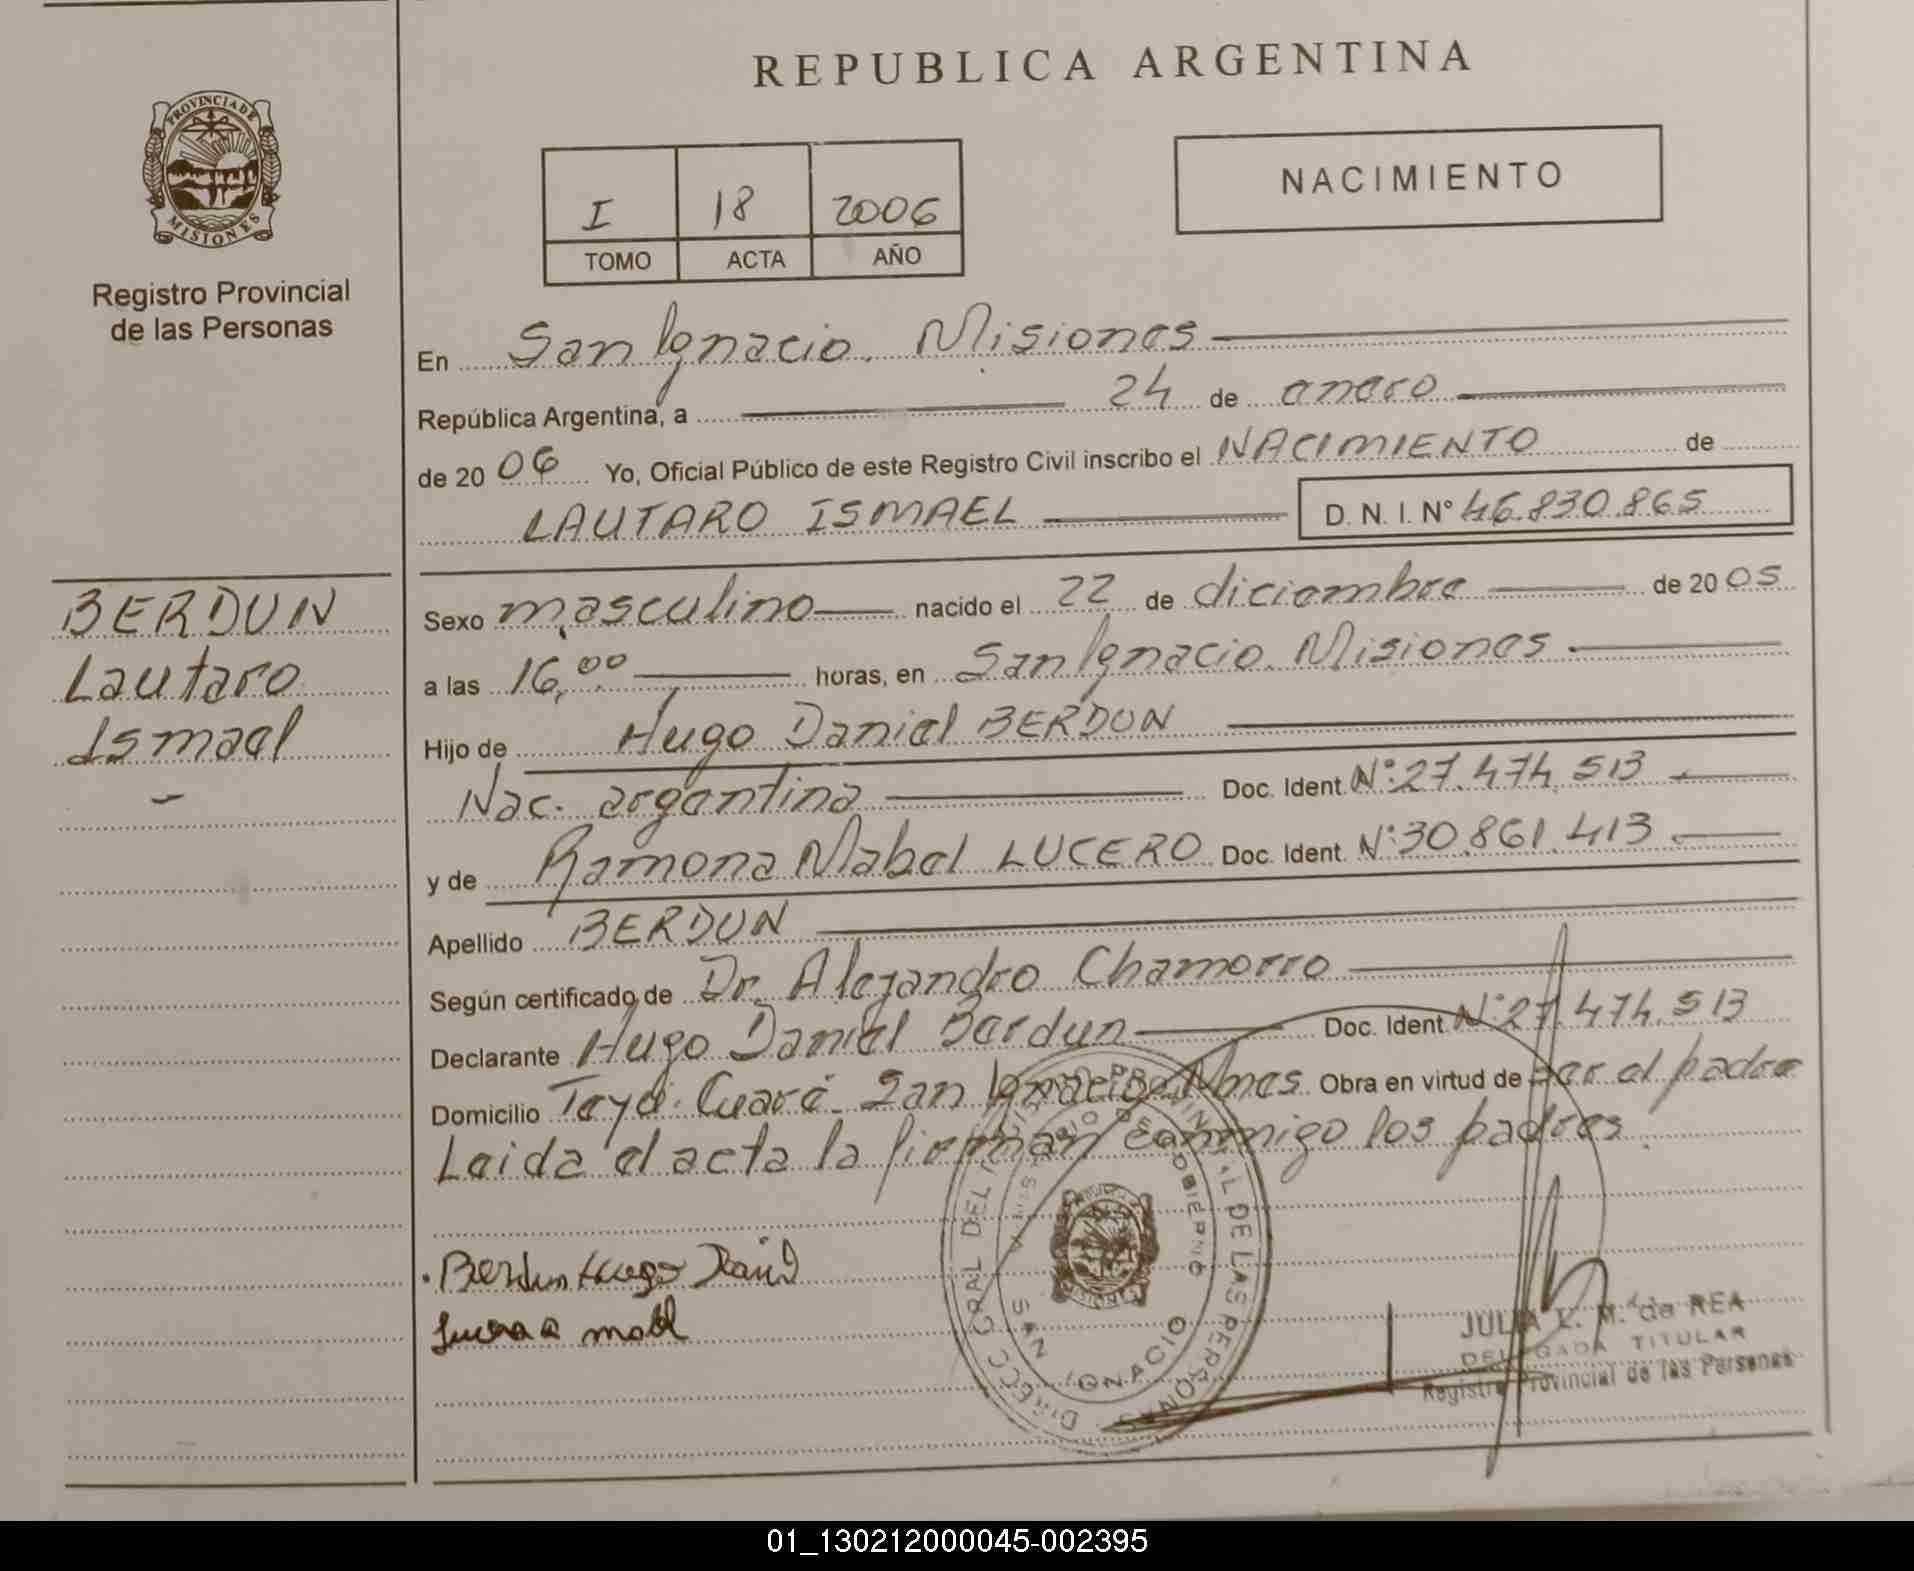 REPUBLICA ARGENTINA
PROVINCIA DE
MISIONES
Registro Provincial
de las Personas
I 18 2006
TOMO ACTA AÑO
NACIMIENTO
En San Ignacio. Misiones
República Argentina, a 24 de enero
de 20 06 Yo, Oficial Público de este Registro Civil inscribo el NACIMIENTO de
LAUTARO ISMAEL D. N. I. Nº 46.830.865
BERDUN
Lautaro
Ismael
Sexo masculino nacido el 22 de diciembre de 20 05
a las 16,00 horas, en San Ignacio. Misiones
Hijo de Hugo Daniel BERDUN
Nac. argentina Doc. Ident. Nº: 27.474.513
y de Ramona Mabel LUCERO Doc. Ident. Nº: 30.861.413
Apellido BERDUN
Según certificado de Dr. Alejandro Chamorro
Declarante Hugo Daniel Berdun Doc. Ident. Nº: 27.474.513
Domicilio Teyú Cuaré San Ignacio Mnes. Obra en virtud de ser el padre
Leida el acta la firman conmigo los padres.
Berdun Hugo Daniel
DIRECC GRAL DEL PROVINCIAL DE LAS PERSONAS
MINISTERIO DE GOBIERNO
SAN IGNACIO
JULIA L. M. de REA
DELEGADA TITULAR
Registro Provincial de las Personas
01_130212000045-002395